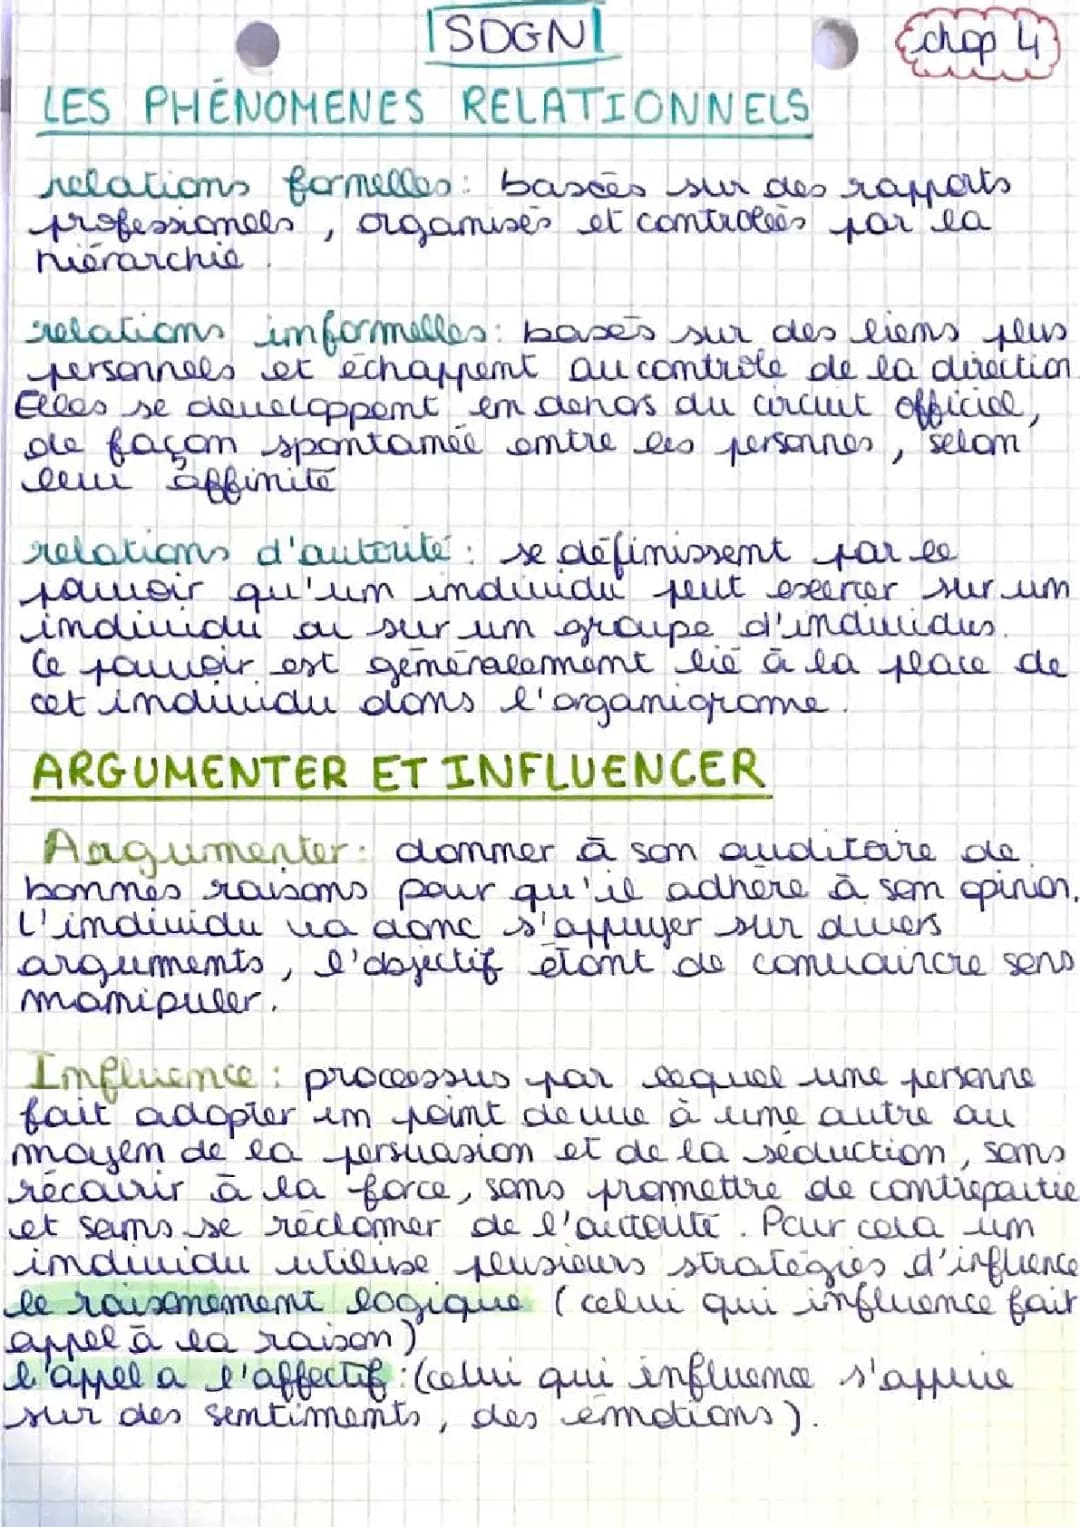 SDGN
chap 4
LES PHÉNOMENES RELATIONNELS
relations formelles : basées sur des rapports
professionels, organisés et controlées par la
hiérarchie.
relations informelles : basés sur des liens plus
personnels et échappent au contrôle de la direction
Elles se développent en dehors du circuit officiel,
de façon spontanée entre les personnes, selon
leur affinité
relations d'autorité : se définissent par le
pouvoir qu'un individu peut exercer sur un
individu ou sur un groupe d'individus.
Ce pouvoir est généralement lié à la place de
cet individu dans l'organigrame.
ARGUMENTER ET INFLUENCER
Argumenter : donner à son auditoire de
bonnes raisons pour qu'il adhère à son opinion.
L'individu va donc s'appuyer sur divers
arguments, l'objectif étant de convaincre sans
manipuler.
Influence : processus par lequel une personne
fait adopter un point de vue à une autre au
moyen de la persuasion et de la séduction, sans
récourir à la force, sans promettre de contrepartie
et sans se réclamer de l'autorité. Pour cela un
individu utilise plusieurs stratégies d'influence
le raisonement logique (celui qui influence fait
appel à la raison)
l'appel a l'affectif : (celui qui influence s'appuie
sur des sentiments, des émotions).